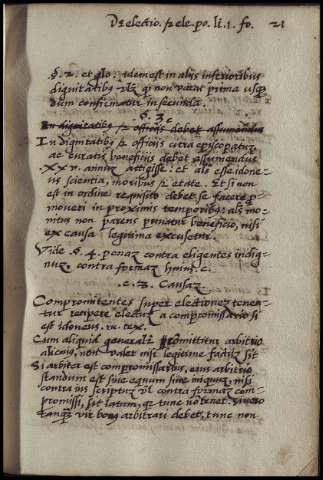 De electio. & ele. po. li. 1. fo. 21
§. 2. et glo. idem est in aliis inferioribus
dignitatibus qͥ non vacat prima usqͣ
dum confirmatur in secunda.
§. 3.
In dignitatibus & officiis debet assumendus
In dignitatibus & officiis citra episcopatum
ac curatis beneficiis debet assumendus
XXV. annum attigisse. et als esse idone-
us scientia, moribus & etate. Et si non
est in ordine requisito debet se facere p
moveri in proximis temporibus als mo-
nitus non parens privatur beneficio, nisi
ex causa legitima excusetur.
Vide §. 4. penaz contra eligentes indig-
nuz contra formaz huius c.
c. 8. Causaz
Compromitentes super electionez tenen-
tur recipere electuz a compromissario si
est idoneus. in tex.
Cum aliquid generali promittitur arbitrio
alicuius, non valet nisi legitime factuz sit
Si arbiter est compromissarius, eius arbitrio
standum est sive equum sive iniquuz, nisi
contra ius scriptuz vel contra formaz com-
promissi, sit latum, qz tunc no tenet.
tanqz vir bonus arbitrari debet, tunc non